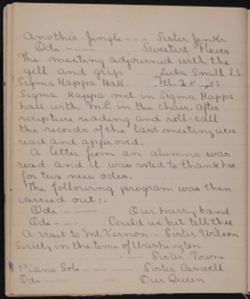 Another Jingle --- Sister Jenks
Ode --- Sweetest Flower
The meeting adjourned with the
yell and grip. Lula Smill
Sigma Kappa Hall. Feb. 2
Sigma Kappa met in Sigma Kappa
hall with M.C. in the chair, after
scripture reading and roll-call
the records of the last meeting were
read and approved.
A letter from an alumna was
read and it was voted to thank her
for two new odes.
The following program was then
carried out:-
Ode --- Our merry band
Ode --- Could we but tell thee
A visit to Mt. Vernon - Sister Wilson
Society in the time of Washington
--- Sister Towne
Piano Solo --- Sister
Ode --- Our Queen